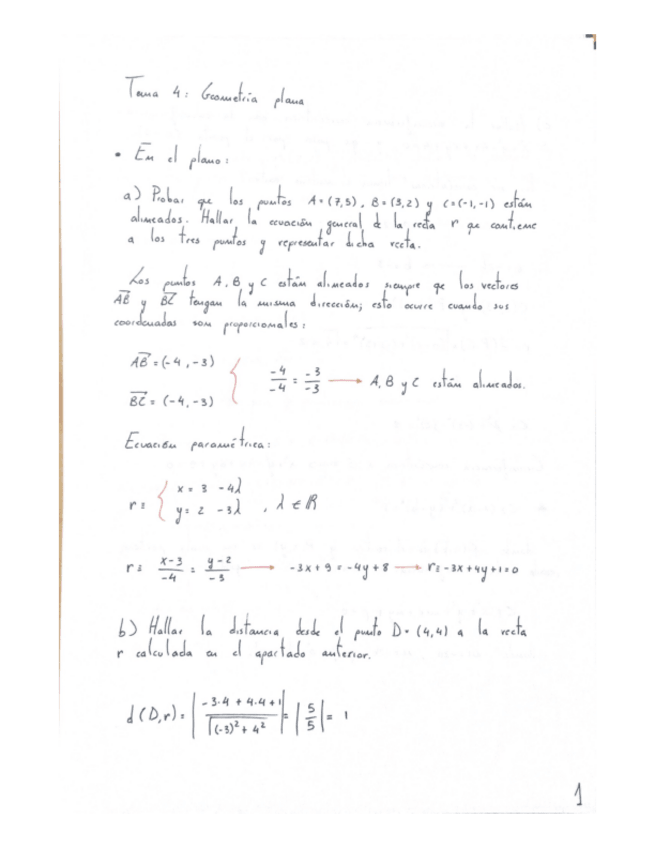 Tema 4: Geometría plana
• En el plano:
a) Probar que los puntos A=(7,5), B=(3,2) y C=(-1,-1) están
alineados. Hallar la ecuación general de la recta r que contiene
a los tres puntos y representar dicha recta.
Los puntos A, B y C están alineados siempre que los vectores
AB⃗ y BC⃗ tengan la misma dirección; esto ocurre cuando sus
coordenadas son proporcionales:
AB⃗ = (-4, -3) { -4/-4 = -3/-3 → A, B y C están alineados.
BC⃗ = (-4, -3)
Ecuación paramétrica:
r ≡ { x = 3 - 4λ
y = 2 - 3λ , λ ∈ ℝ
r ≡ x-3/-4 = y-2/-3 → -3x + 9 = -4y + 8 → r ≡ -3x + 4y + 1 = 0
b) Hallar la distancia desde el punto D = (4,4) a la recta
r calculada en el apartado anterior.
d(D,r) = | -3·4 + 4·4 + 1 / √(-3)² + 4² | = | 5/5 | = 1
1